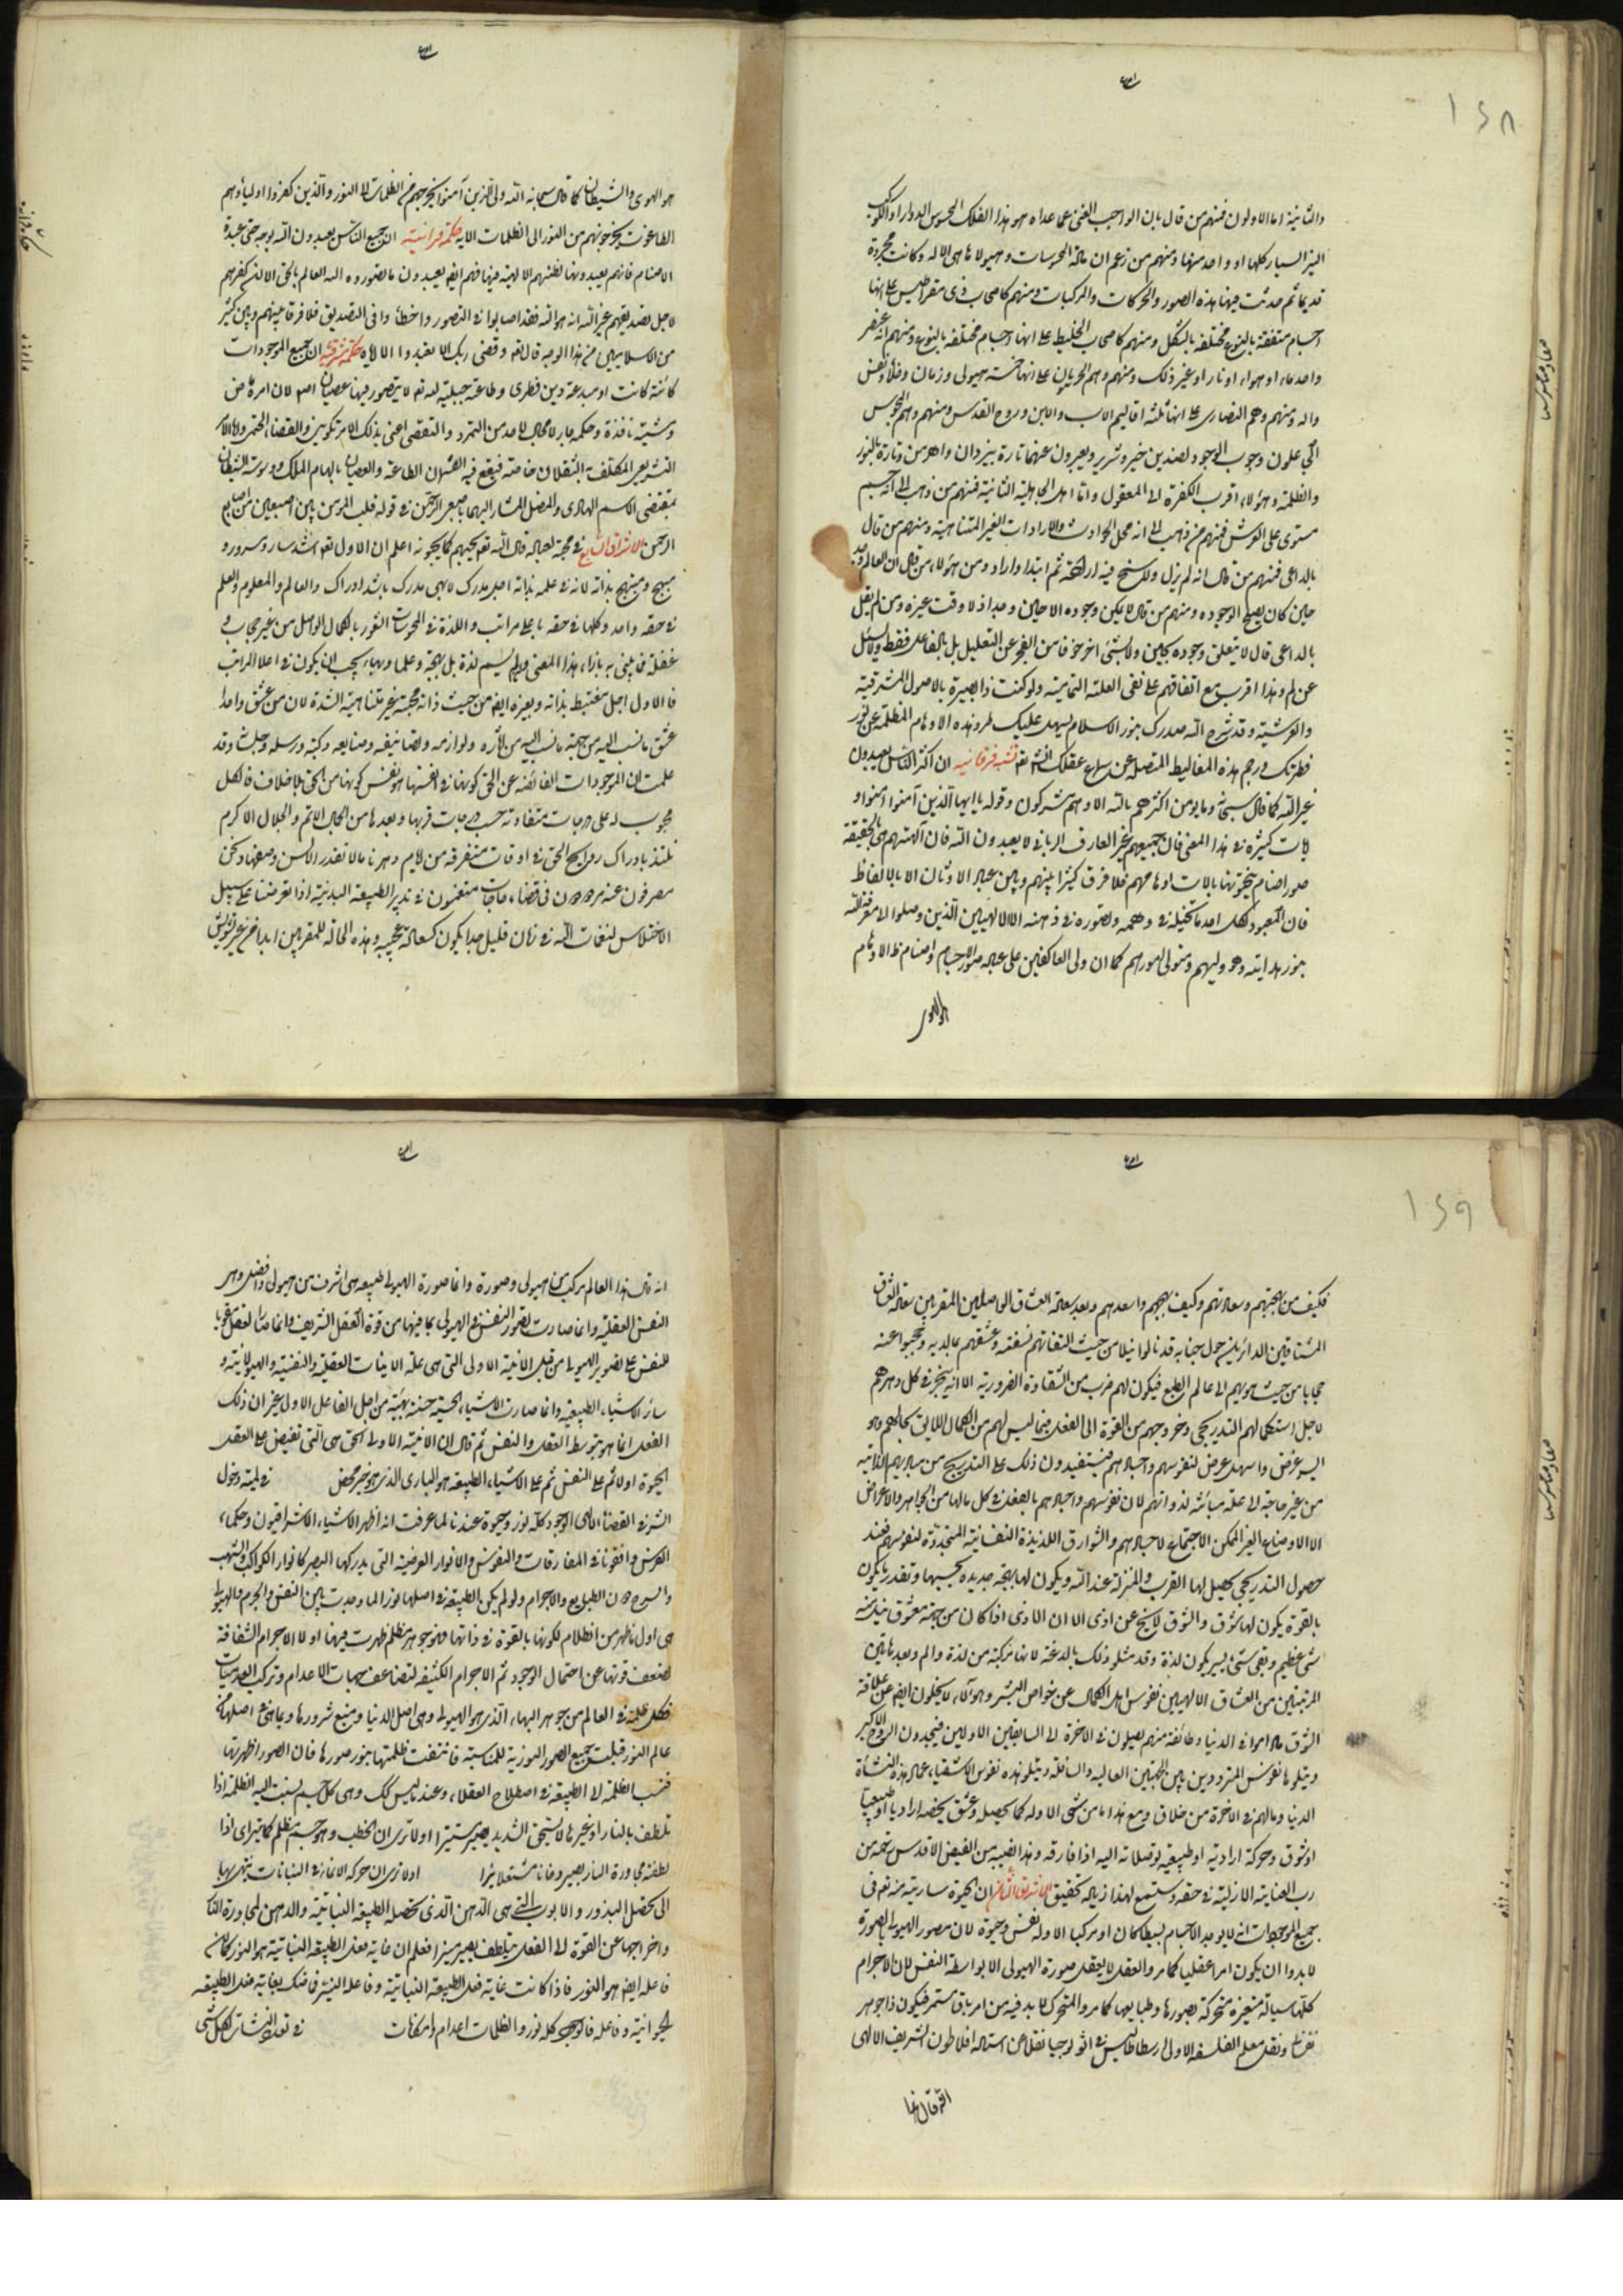 ۱۵۸
والثانية اما الاولون فمنهم من قال بان الواجب الغنى عما عداه هو هذا الفلك المحسوس الدوار او الكوكب
النير السيار كلها او واحد منها ومنهم من زعم ان مادة المحسوسات وهيولاها هى الاله وكانت مجردة
قديما ثم حدثت فيها هذه الصور والحركات والمركبات ومنهم كاصحاب ذى مقراطيس على انها
اجسام متفقة بالنوع مختلفة بالشكل ومنهم كاصحاب الخليط على انها اجسام مختلفة بالنوع ومنهم انه عنصر
واحد ماء او هواء او نار او غير ذلك ومنهم وهم الحرنانيون على انها خمسة هيولى وزمان وخلاء ونفس
واله ومنهم وهم النصارى على انها ثلثة اقاليم الاب والابن وروح القدس ومنهم وهم المجوس
اى يجعلون وجوب الوجود لضدين خير وشرير ويعبرون عنهما تارة بيزدان واهرمن وتارة بالنور
والظلمة وهؤلاء اقرب الكفرة الى المعقول واما اهل الجاهلية الثانية فمنهم من ذهب الى انه جسم
مستوى على العرش فمنهم من ذهب الى انه محل الحوادث والارادات الغير المتناهية ومنهم من قال
بالداعى فمنهم من قال انه لم يزل ولم يسنح فيه ارادة ثم ابتدا واراد ومن هؤلاء من قال ان العالم وجد
حين كان يصلح لوجوده ومنهم من قال لا يمكن وجوده الا حين وجد اذ لا وقت غيره ومن لم يقل
بالداعى قال لا يتعلق وجوده بحين ولا بشئ اخر خوفا من العجز عن التعليل بل بالفاعل فقط ولا يسئل
عن لم وهذا اقرب مع اتفاقهم على نفى العلة التمامية ولو كنت ذا بصيرة بالاصول المشرقية
والعرشية وقد شرح الله صدرك بنور الاسلام يسهل عليك طرد هذه الاوهام المظلمة عن نور
فطرتك ورجم هذه المغاليط المتصلة عن سماء عقلك انشاء الله تعالى تنبيه فرقانيه ان اكثر الناس يعبدون
غير الله كما قال سبحانه وما يومن اكثرهم بالله الا وهم مشركون وقوله يا ايها الذين آمنوا آمنوا و
ايات كثيرة فى هذا المعنى فان جميعهم غير العارف الربانى لا يعبدون الله فان آلهتهم فى الحقيقة
صور اصنام ينحتونها بالات اوهامهم فلا فرق كثيرا بينهم وبين عباد الاوثان الا بالالفاظ
فان المعبود لكل احد ما تخيله فى وهمه وتصوره فى ذهنه الا الالهيين الذين وصلوا الى معرفة الله
بنور هدايته وهو وليهم ومتولى امورهم كما ان ولى العاكفين على عبادة صور الاجسام واصنام الاوهام
هو الهوى
هو الهوى والشيطان كما قال سبحانه الله ولى الذين آمنوا يخرجهم من الظلمات الى النور والذين كفروا اولياؤهم
الطاغوت يخرجونهم من النور الى الظلمات الاية حكمة قرانية ان جميع الناس يعبدون الله بوجه حتى عبدة
الاصنام فانهم يعبدونها لظنهم الالهية فيها فهم ايضا يعبدون ما تصوروه اله العالم بالحق الا ان كفرهم
لاجل تصديقهم غير الله انه هو الله فقد اصابوا فى التصور واخطئوا فى التصديق فلا فرق بينهم وبين كثير
من الاسلاميين من هذا الوجه قال تعالى وقضى ربك الا تعبدوا الا اياه حكمة مشرقية ان جميع الموجودات
كائنة كانت او مبدعة دين فطرى وطاعة جبلية لله تعالى لا يتصور فيها عصيان اصلا لان امره ماض
ومشيته نافذة وحكمه جار لا مجال لاحد من التمرد والتعصى اعنى بذلك الامر التكوينى والقضاء الحتمى واما الامر
التشريعى المكلف به الثقلان خاصة فيقع فيه القسمان الطاعة والعصيان بالهام الملك ووسوسة الشيطان
بمقتضى الاسم الهادى والمضل المشار اليهما باصبعى الرحمن فى قوله قلب المؤمن بين اصبعين من اصابع
الرحمن الاشراق السابع فى محبة لعباده قال الله تعالى يحبهم كما يحبونه اعلم ان الاول تعالى اشد سار ومسرور و
مبهج ومبتهج بذاته لانه فى علمه بذاته اجل مدرك لابهى مدرك باشد ادراك والعالم والمعلوم والعلم
فى حقه واحد وكلها فى حقه باعلى مراتب واللذة فى المحسوسات الشعور بالكمال الواصل من غير حجاب و
غفلة فما ينبئ به بازاء هذا المعنى ولم يسم لذة بل بهجة وعلما وبهاء يجب ان يكون فى اعلا المراتب
فالاول اجل مغتبط بذاته وبغيره ايضا من حيث ذاته محبة غير متناهية الشدة لان من عشق واحدا
عشق ما نسب اليه من جهة ما نسب اليه من آثاره ولوازمه وتصانيفه وصنايعه وكتبه ورسله وجلسائه وقد
علمت ان الموجودات الفائضة عن الحق كونها فى انفسها هو نفس كونها من الحق بلا خلاف فالكل
محبوب له على درجات متفاوتة حسب درجات قربها وبعدها من الجمال الاتم والجلال الاكرم
نلتذ بادراك روايح الحق فى اوقات متفرقة من ايام دهرنا ما لا تقدر الالسن وصفها ونحن
مصرفون عنه مردودون فى قضاء حاجات منغمسون فى تدبير الطبيعة البدنية اذا تعرضنا على سبيل
الاختلاس لنفحات الله فى زمان قليل جدا يكون كسعادة عجيبة وهذه الحالة للمقربين ابدا من غير تشويش
۱۵۹
فكيف من بهجتهم وسعادتهم وكيف بهجهم واسعدهم وبعد سعادة العشاق الواصلين المقربين سعادة العشاق
المشتاقين الدائرين حول جنابه قد نالوا نيلا من حيث التفاتهم لنفسه وعشقهم لما لديه وحجبوا عنه
حجابا من حيث هويهم الى عالم الطبع فيكون لهم ضرب من الشقاوة الضرورية الا انه ينجبر فى كل دهرهم
لاجل استكمالهم التدريجى وخروجهم من القوة الى الفعل فيما ليس لهم من الكمال اللايق بحالهم وهو
ايسر غرض واسهل عرض لنفوسهم واجسادهم فيستفيدون ذلك على التدريج من مباديهم الذاتيه
من غير حاجة الى علة مباينة لذواتهم لان نفوسهم واجسادهم بالفعل فى كل مالها من الجواهر والاعراض
الا الاوضاع الغير الممكن الاجتماع لاجسادهم والشوارق اللذيذة النفسانية المتجددة لنفوسهم فعند
حصول التدريجى يحصل لها القرب والمنزلة عند الله ويكون لها بهجة جديده بحسبها وتقدر ما يكون
بالقوة يكون لها شوق والشوق لا يخلو عن اذى الا ان الاذى اذا كان من جهة معشوق نيل منه
شئ عظيم وبقى شئ يسير يكون لذة وقد مثلوا ذلك بالدغدغة لانها مركبة من لذة والم وبعد هاتين
المرتبتين من العشاق الالهيين نفوس اهل الكمال عن خواص البشر وهؤلاء لا يخلون ايضا عن علاقة
الشوق ما داموا فى الدنيا وطائفة منهم يصلون فى الاخرة الى السابقين الاولين فيجدون الروح الاكبر
ويتلوها نفوس المترددين بين الجهتين العالية والسافلة ويتلو هذه نفوس الاشقياء عمار هذه النشأة
الدنيا ومالهم فى الاخرة من خلاق ومع هذا ما من شئ الا وله كمال يحصله وعشق يخصه اراديا او طبيعيا
او شوق وحركة ارادية او طبيعية توصلانه اليه اذا فارقه وهذا نصيبه من الفيض الاقدس رحمة من
رب العناية الازلية فى حقه وستسمع لهذا زيادة تحقيق الاشراق الثامن ان الحيوة سارية منه تعالى فى
جميع الموجودات انه لا يوجد الاجسام بسيطا كان او مركبا الا وله نفس وحيوة لان مصور الهيولى بالصورة
لا بد وان يكون امرا عقليا كما مر والعقل لا يعقل صورة الهيولى الا بواسطة النفس لان الاجرام
كلها سيالة متغيرة متحركة بصورها وطبايعها كما مر والمتحرك لا بد فيه من امر باق مستمر فيكون ذا جوهر
نفسانى ونقل معلم الفلسفة الاولى ارسطاطاليس فى اثولوجيا نقلا عن استاده افلاطون الشريف الالهى
انه قال انما
انه قال هذا العالم مركب من هيولى وصورة وانما صورة الهيولى طبيعه هى اشرف من هيولى وافضل وهى
النفس العقلية وانما صارت تصور النفس فى الهيولى بما فيها من قوة العقل الشريف وانما صار العقل مقويا
للنفس على تصوير الهيولى من قبل الانية الاولى التى هى علة الانيات العقلية والنفسية والهيولانية و
سائر الاشياء الطبيعية وانما صارت الاشياء الحسية حسنة بهية من اجل الفاعل الاول غير ان ذلك
الفعل انما هو بتوسط العقل والنفس ثم قال ان الانية الاولى الحق هى التى تفيض على العقل
الحيوة اولا ثم على النفس ثم على الاشياء الطبيعه هو البارى الذى هو خير محض فى لمية دخول
الشر فى القضاء الالهى الوجود كله نور وحيوة عندنا لما عرفت انه اظهر الاشياء الاشراقيون وحكماء
الفرس وافقونا فى المفارقات والنفوس والانوار العرضية التى يدركها البصر كانوار الكواكب والشهب
والسرج دون الطبايع والاجرام ولو لم يكن الطبيعة فى اصلها نورا لما وجدت بين النفس والجرم والهيولى
هى اول ما ظهر من الظلام لكونها بالقوة فى ذاتها فهو جوهر مظلم ظهرت فيها اولا الاجرام الشفافة
لضعف قوتها عن احتمال الوجود ثم الاجرام الكثيفة لتضاعف جهات الاعدام وتركب العدميات
فكل ظلمة فى العالم من جوهر الهباء الذى هو الهيولى وهى اصل الدنيا ومنبع شرورها وبما هى فى اصلها من
عالم النور قبلت جميع الصور النورية للمناسبة فانتفت ظلمتها بنور صورها فان الصور اظهرتها
فنسب الظلمة الى الطبيعة فى اصطلاح العقلاء وعندنا ليس كك وهى كل جسم نسبت اليه الظلمة اذا
تلطف بالنار او غيرها لا يستحق الشديد يصير مستنيرا او لا ترى ان الحطب وهو جسم مظلم كما يراى اذا
لطفته مجاورة النار يصير دخانا مشتعلا نيرا او لا ترى ان حركة الانماء فى النباتات ينتهى بها
الى تحصيل البذور واللبوب التى هى الدهن الذى تحصله الطبيعة النباتية والدهن لمجاورة النار
واخراجها عن القوة الى الفعل يتلطف يصير نيرا فعلم ان غاية فعل الطبيعة النباتية هو النور كما
فاعله ايضا هو النور فاذا كانت غاية فعل الطبيعة النباتية وفاعله النير فما ظنك بغاية فعل الطبيعه
الحيوانية وفاعله فالوجود كله نور والظلمات اعدام وامكانات فى تعدد النشات لكل شئ